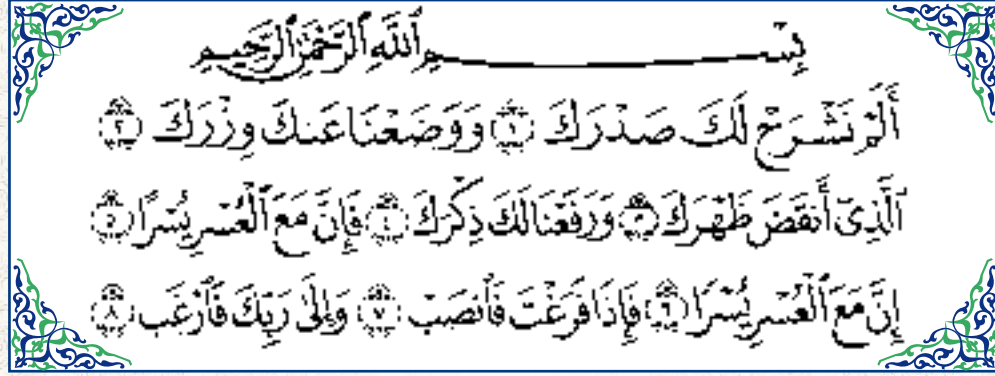 بِسْمِ ٱللَّهِ ٱلرَّحْمَٰنِ ٱلرَّحِيمِ
أَلَمْ نَشْرَحْ لَكَ صَدْرَكَ ١ وَوَضَعْنَا عَنكَ وِزْرَكَ ٢
ٱلَّذِىٓ أَنقَضَ ظَهْرَكَ ٣ وَرَفَعْنَا لَكَ ذِكْرَكَ ٤ فَإِنَّ مَعَ ٱلْعُسْرِ يُسْرًا ٥
إِنَّ مَعَ ٱلْعُسْرِ يُسْرًا ٦ فَإِذَا فَرَغْتَ فَٱنصَبْ ٧ وَإِلَىٰ رَبِّكَ فَٱرْغَب ٨